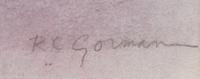 R.C. Gorman